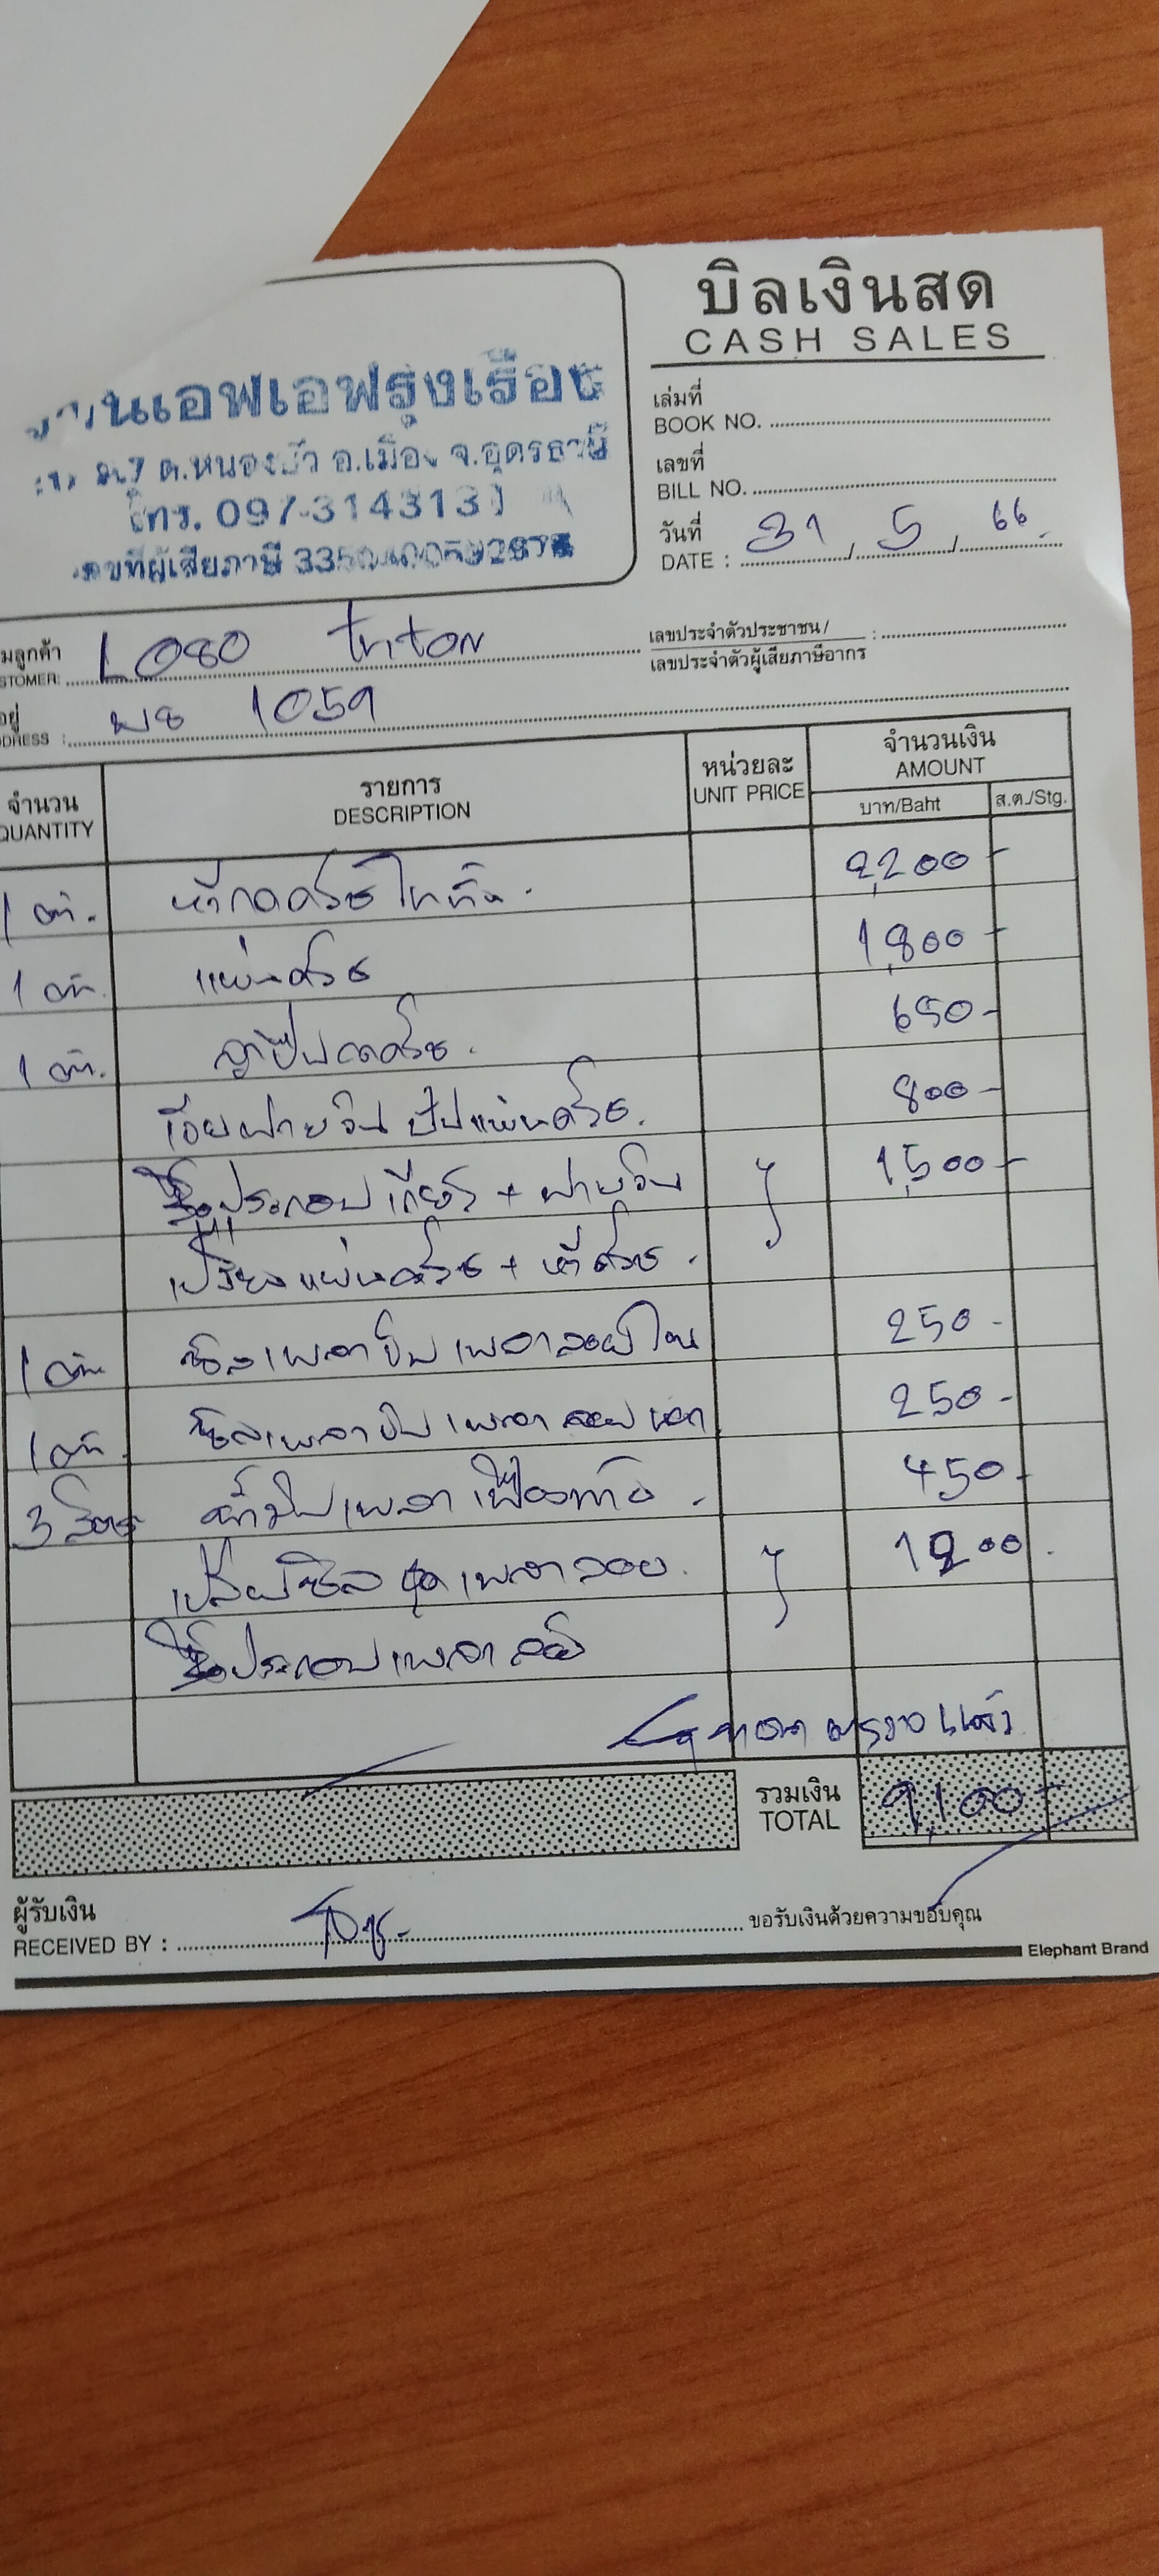 บิลเงินสด
CASH SALES
เอฟเอฟรุ่งเรือง
ต.หนองบัว อ.เมือง จ.อุดรธานี
โทร. 097-3143131
เลขที่ผู้เสียภาษี
เล่มที่
BOOK NO.
เลขที่
BILL NO.
วันที่
DATE : 31 / 5 / 66
มลูกค้า
STOMER: L080 triton
อยู่
DDRESS : ผธ 1059
เลขประจำตัวประชาชน/ :
เลขประจำตัวผู้เสียภาษีอากร
จำนวน
QUANTITY
รายการ
DESCRIPTION
หน่วยละ
UNIT PRICE
จำนวนเงิน
AMOUNT
บาท/Baht
ส.ต./Stg.
1 ตัว. หวีกดครัช 2,200-
1 ตัว. แผ่นครัช 1,800-
1 ตัว. ลูกปืนกดครัช. 650-
เจียรฝายวิน ปั๊มแผ่นครัช. 800-
ประกอบเกียร์ + ฝายวิน 1,500-
เปลี่ยนแผ่นครัช + หวีครัช.
1 ตัว ซีลเพลาขับ เพลาลอยใน 250-
1 ตัว. ซีลเพลาขับ เพลาลอยนอก 250-
3 ลิตร น้ำมันเพลาเฟืองท้าย. 450-
เปลี่ยนซีล ชุดเพลาลอย. 1200.
ประกอบเพลาลอย
ตรวจแล้ว
รวมเงิน
TOTAL 9,100-
ผู้รับเงิน
RECEIVED BY : ขอรับเงินด้วยความขอบคุณ
Elephant Brand